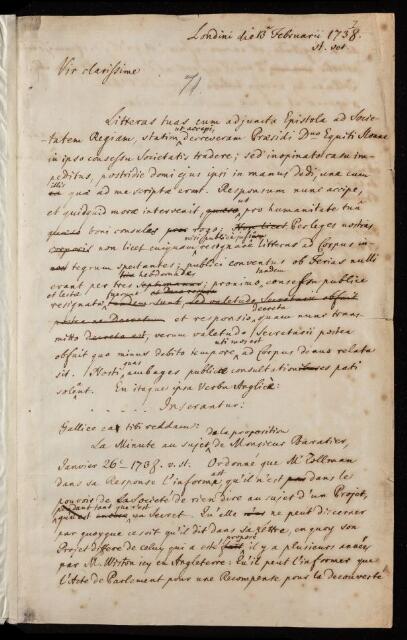 Londini die 13 Februarii 1738.
st. vet.
Vir clarissime
Litteras tuas cum adjuncta Epistola ad Socie-
tatem Regiam, statim ut accepi, decreveram Præsidi Dno Equiti Sloane
in ipso consessu Societatis tradere; sed inopinato casu im-
peditus, postridie domi ejus ipsi in manus dedi, una cum
illis quæ ad me scripta erant. Responsum nunc accipe,
et quidquid moræ intercessit, ut pro humanitate tuâ
boni consulas rogo; Perleges nostras
non licet cuiquam nisi publice resignare litteras ad Corpus in-
tegrum spectantes; publici conventus ob Ferias nulli
erant per tres hebdomadas; proximo, tandem consessu publice
resignatæ et lectæ
et responsio, quam nunc trans-
mitto decreta, verum valetudo Secretarii postea
obfuit quo minus debito tempore, uti mos est ad Corpus denuo relata
sit. Nosti, quas ambages publicæ consultationes pati
solent. En itaque ipsa Verba Anglica:
. . . . . . Inserantur:
Gallice ea tibi reddam:
La Minute au sujet de la proposition de Monsieur Baratier,
Janvier 26 1738. v. st. Ordonné que Mr. Zollman
dans sa Response l'informe, qu'il n'est pas dans les
pouvoirs de la Societé de rien dire au sujet d'un Projet,
pendant tant que c'est un Secret. Qu'elle ne peut discerner
par quoyque ce soit qu'il dit dans sa Lettre, en quoy son
Projet differe de celuy qui a esté proposé il y a plusieurs années
par M. Whiston icy en Angleterre: Qu'il peut l'informer que
l'Acte de Parlement pour une Recompense pour la decouverte